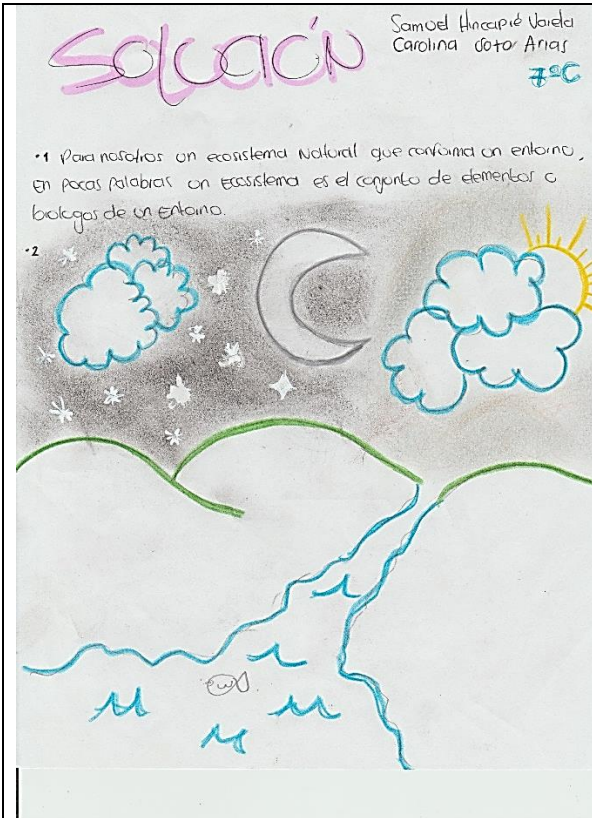 SOLUCIÓN
Samuel Hincapié Varela
Carolina Soto Arias
7°C
•1 Para nosotros un ecosistema Natural que conforma un entorno,
En pocas Palabras un Ecosistema es el conjunto de elementos o
biologos de un Entorno.
•2